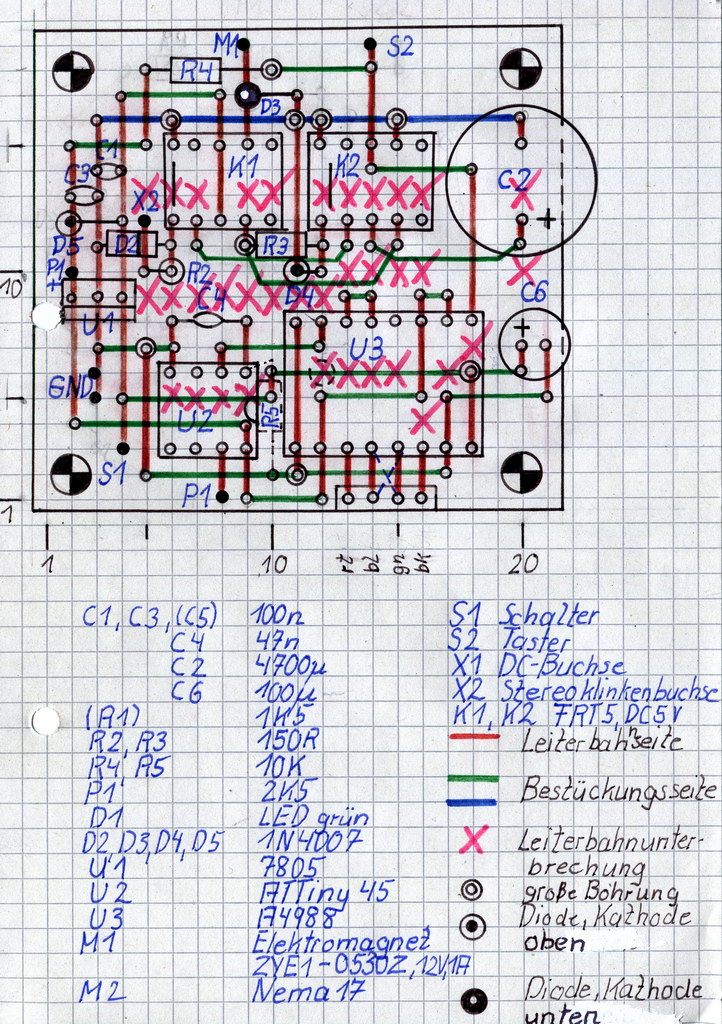 M1 S2
R4
D3
C1 K1 K2
C3 C2
X2
D5 D2 R3 +
P1 R2
+ D4
10 C4 C6
U1 U3 +
GND
U2 R5
S1
P1
1
1 10 rt bl gr bk 20
C1, C3, (C5) 100n
C4 47n
C2 4700µ
C6 100µ
(R1) 1K5
R2, R3 150R
R4, R5 10K
P1 2K5
D1 LED grün
D2, D3, D4, D5 1N4007
U1 7805
U2 ATTiny 45
U3 A4988
M1 Elektromagnet
ZYE1-0530Z, 12V, 1A
M2 Nema 17
S1 Schalter
S2 Taster
X1 DC-Buchse
X2 Stereoklinkenbuchse
K1, K2 FRT5, DC5V
Leiterbahnseite
Bestückungsseite
Leiterbahnunter-
brechung
große Bohrung
Diode, Kathode
oben
Diode, Kathode
unten